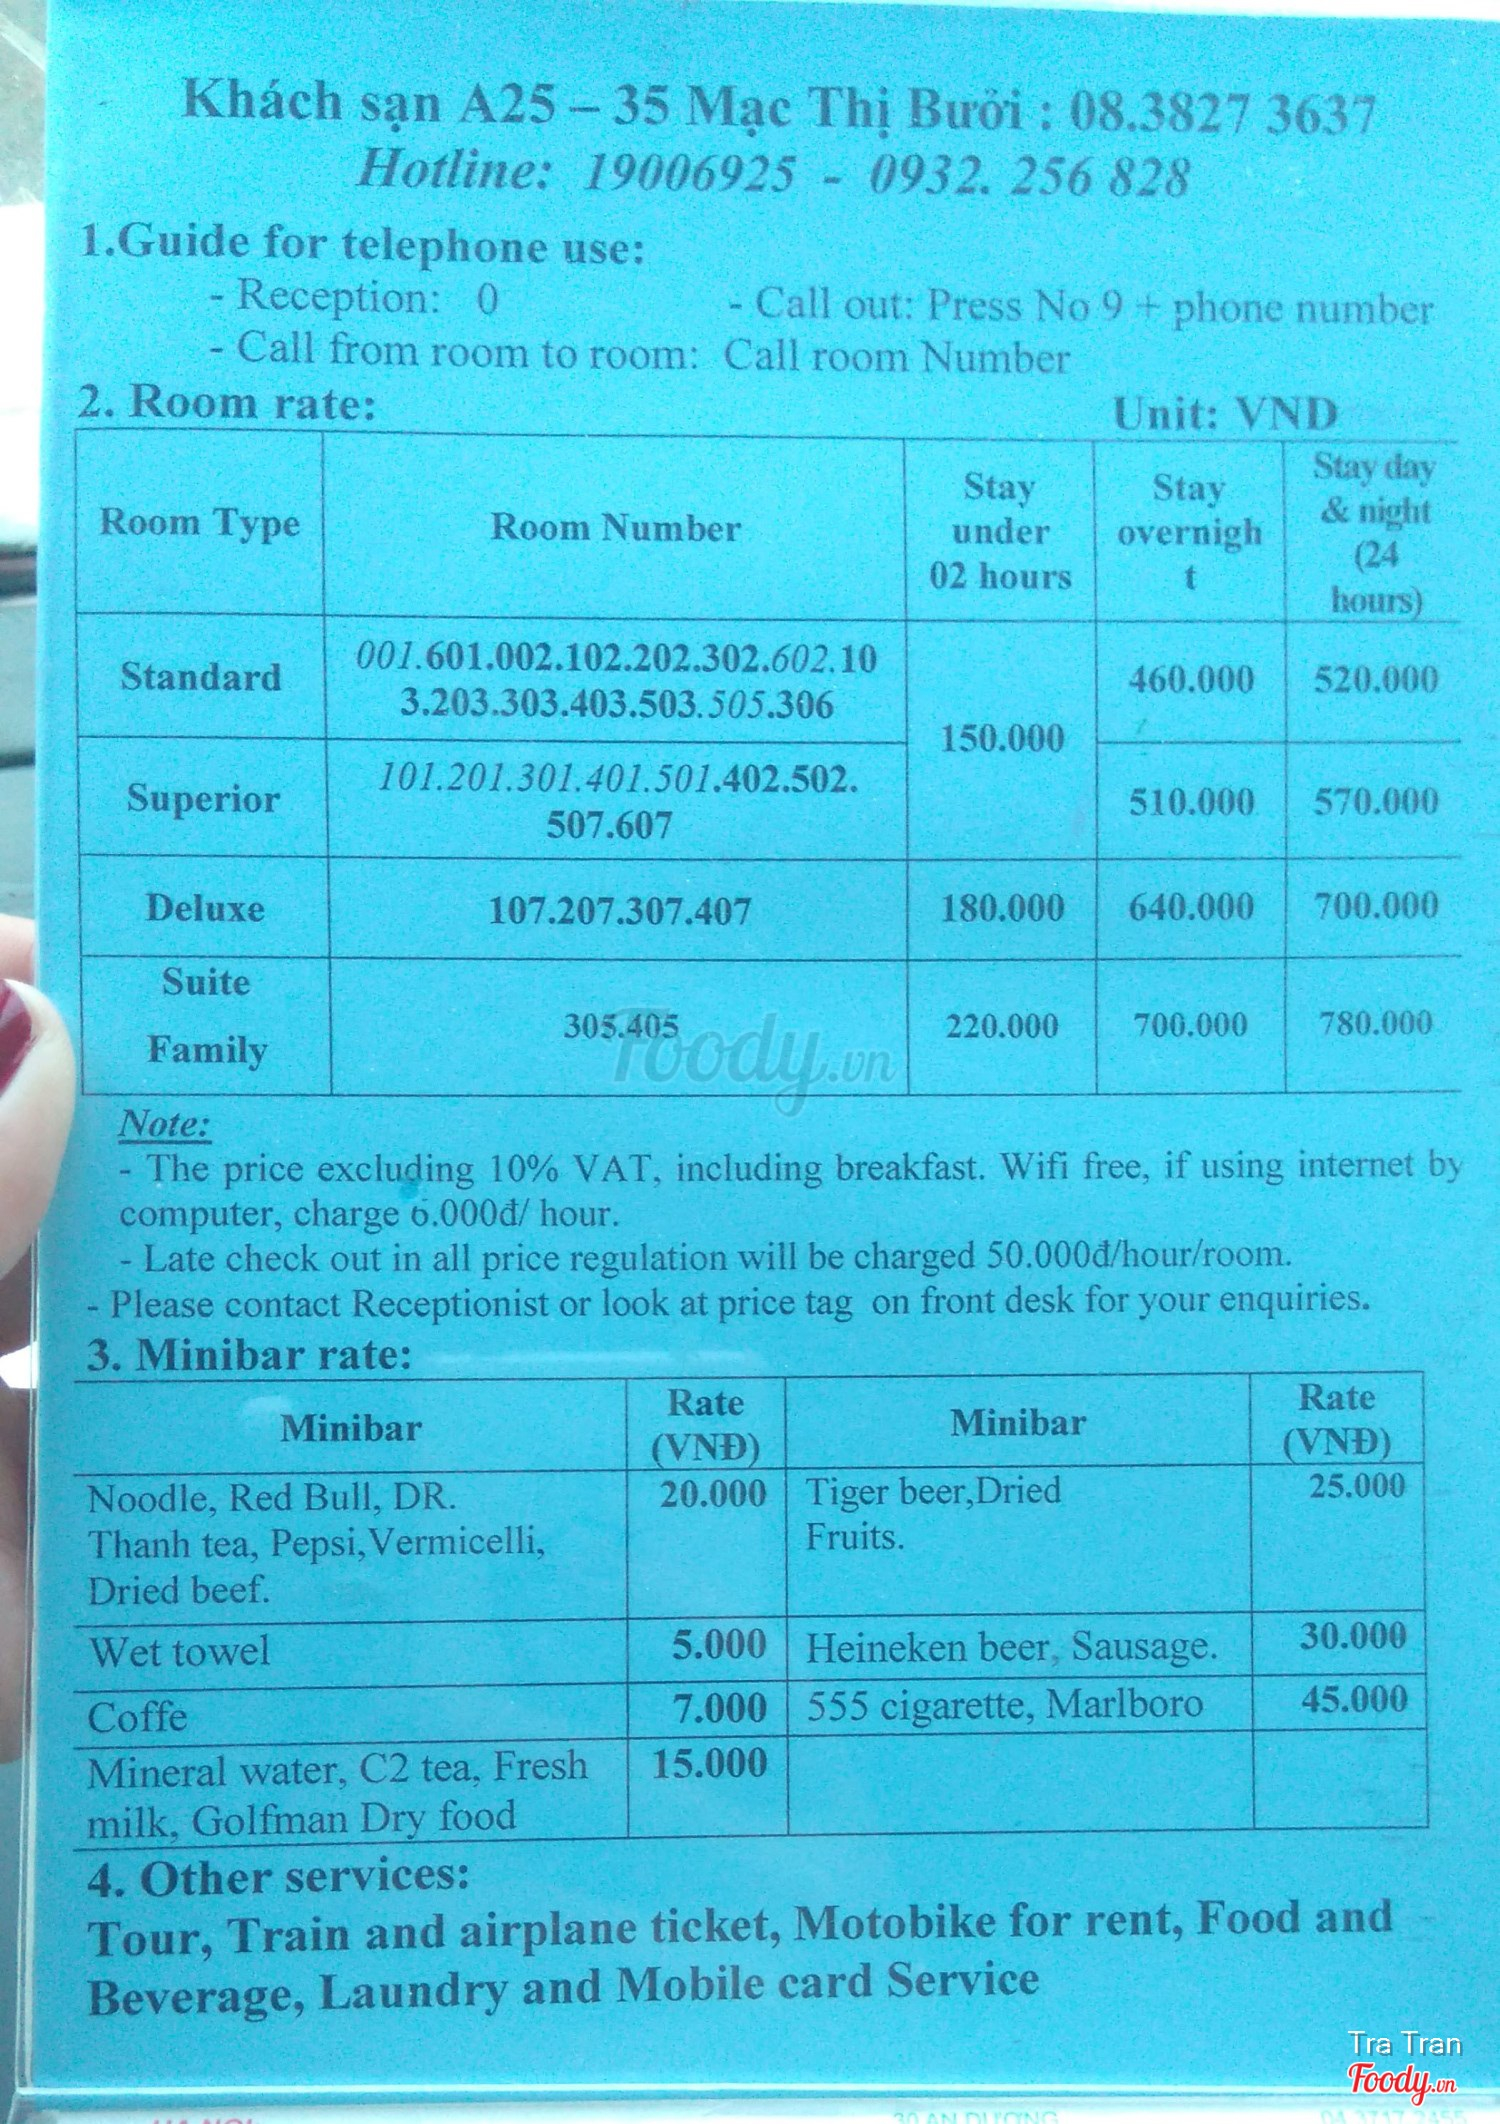 Khách sạn A25 – 35 Mạc Thị Bưởi : 08.3827 3637
Hotline: 19006925 - 0932. 256 828
1.Guide for telephone use:
- Reception: 0 - Call out: Press No 9 + phone number
- Call from room to room: Call room Number
2. Room rate: Unit: VND
Room Type Room Number Stay under 02 hours Stay overnigh t Stay day & night (24 hours)
Standard 001.601.002.102.202.302.602.10 3.203.303.403.503.505.306 150.000 460.000 520.000
Superior 101.201.301.401.501.402.502. 507.607 510.000 570.000
Deluxe 107.207.307.407 180.000 640.000 700.000
Suite Family 305.405 220.000 700.000 780.000
Foody.vn
Note:
- The price excluding 10% VAT, including breakfast. Wifi free, if using internet by
computer, charge 6.000đ/ hour.
- Late check out in all price regulation will be charged 50.000đ/hour/room.
- Please contact Receptionist or look at price tag on front desk for your enquiries.
3. Minibar rate:
Minibar Rate (VNĐ) Minibar Rate (VNĐ)
Noodle, Red Bull, DR. 20.000 Tiger beer,Dried 25.000
Thanh tea, Pepsi,Vermicelli, Fruits.
Dried beef.
Wet towel 5.000 Heineken beer, Sausage. 30.000
Coffe 7.000 555 cigarette, Marlboro 45.000
Mineral water, C2 tea, Fresh 15.000
milk, Golfman Dry food
4. Other services:
Tour, Train and airplane ticket, Motobike for rent, Food and
Beverage, Laundry and Mobile card Service
Tra Tran
Foody.vn
30 AN DƯƠNG